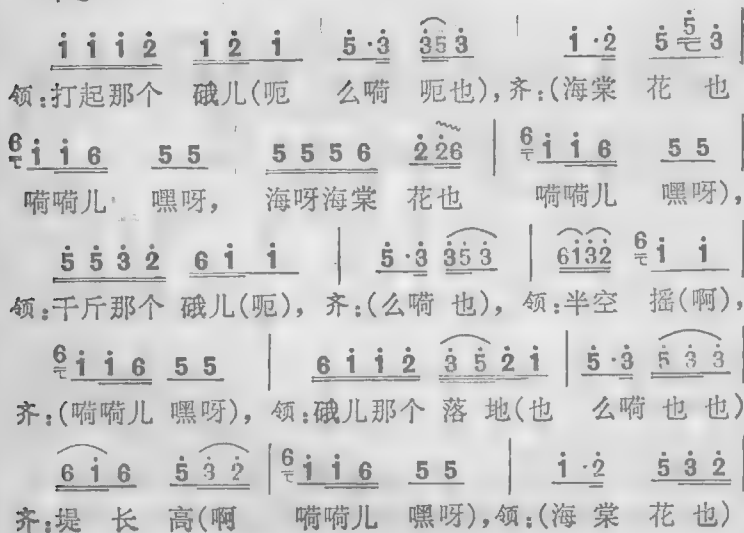 i i i 2 i 2 i 5 ·3 3 5 3 i ·2 5 5 3
领:打起那个 硪儿(呃 么嗬 呃也),齐:(海棠 花 也
6 i i 6 5 5 5 5 5 6 2 2 6 6 i i 6 5 5
嗬嗬儿 嘿呀, 海呀海棠 花也 嗬嗬儿 嘿呀),
5 5 3 2 6 i i 5 ·3 3 5 3 6 i 3 2 6 i i
领:千斤那个 硪儿(呃),齐:(么嗬 也),领:半空 摇(啊),
6 i i 6 5 5 6 i i 2 3 5 2 i 5 ·3 5 3 3
齐:(嗬嗬儿 嘿呀),领:硪儿那个 落 地(也 么嗬 也 也)
6 i 6 5 3 2 6 i i 6 5 5 i ·2 5 3 2
齐:堤 长 高(啊 嗬嗬儿 嘿呀),领:(海 棠 花 也)